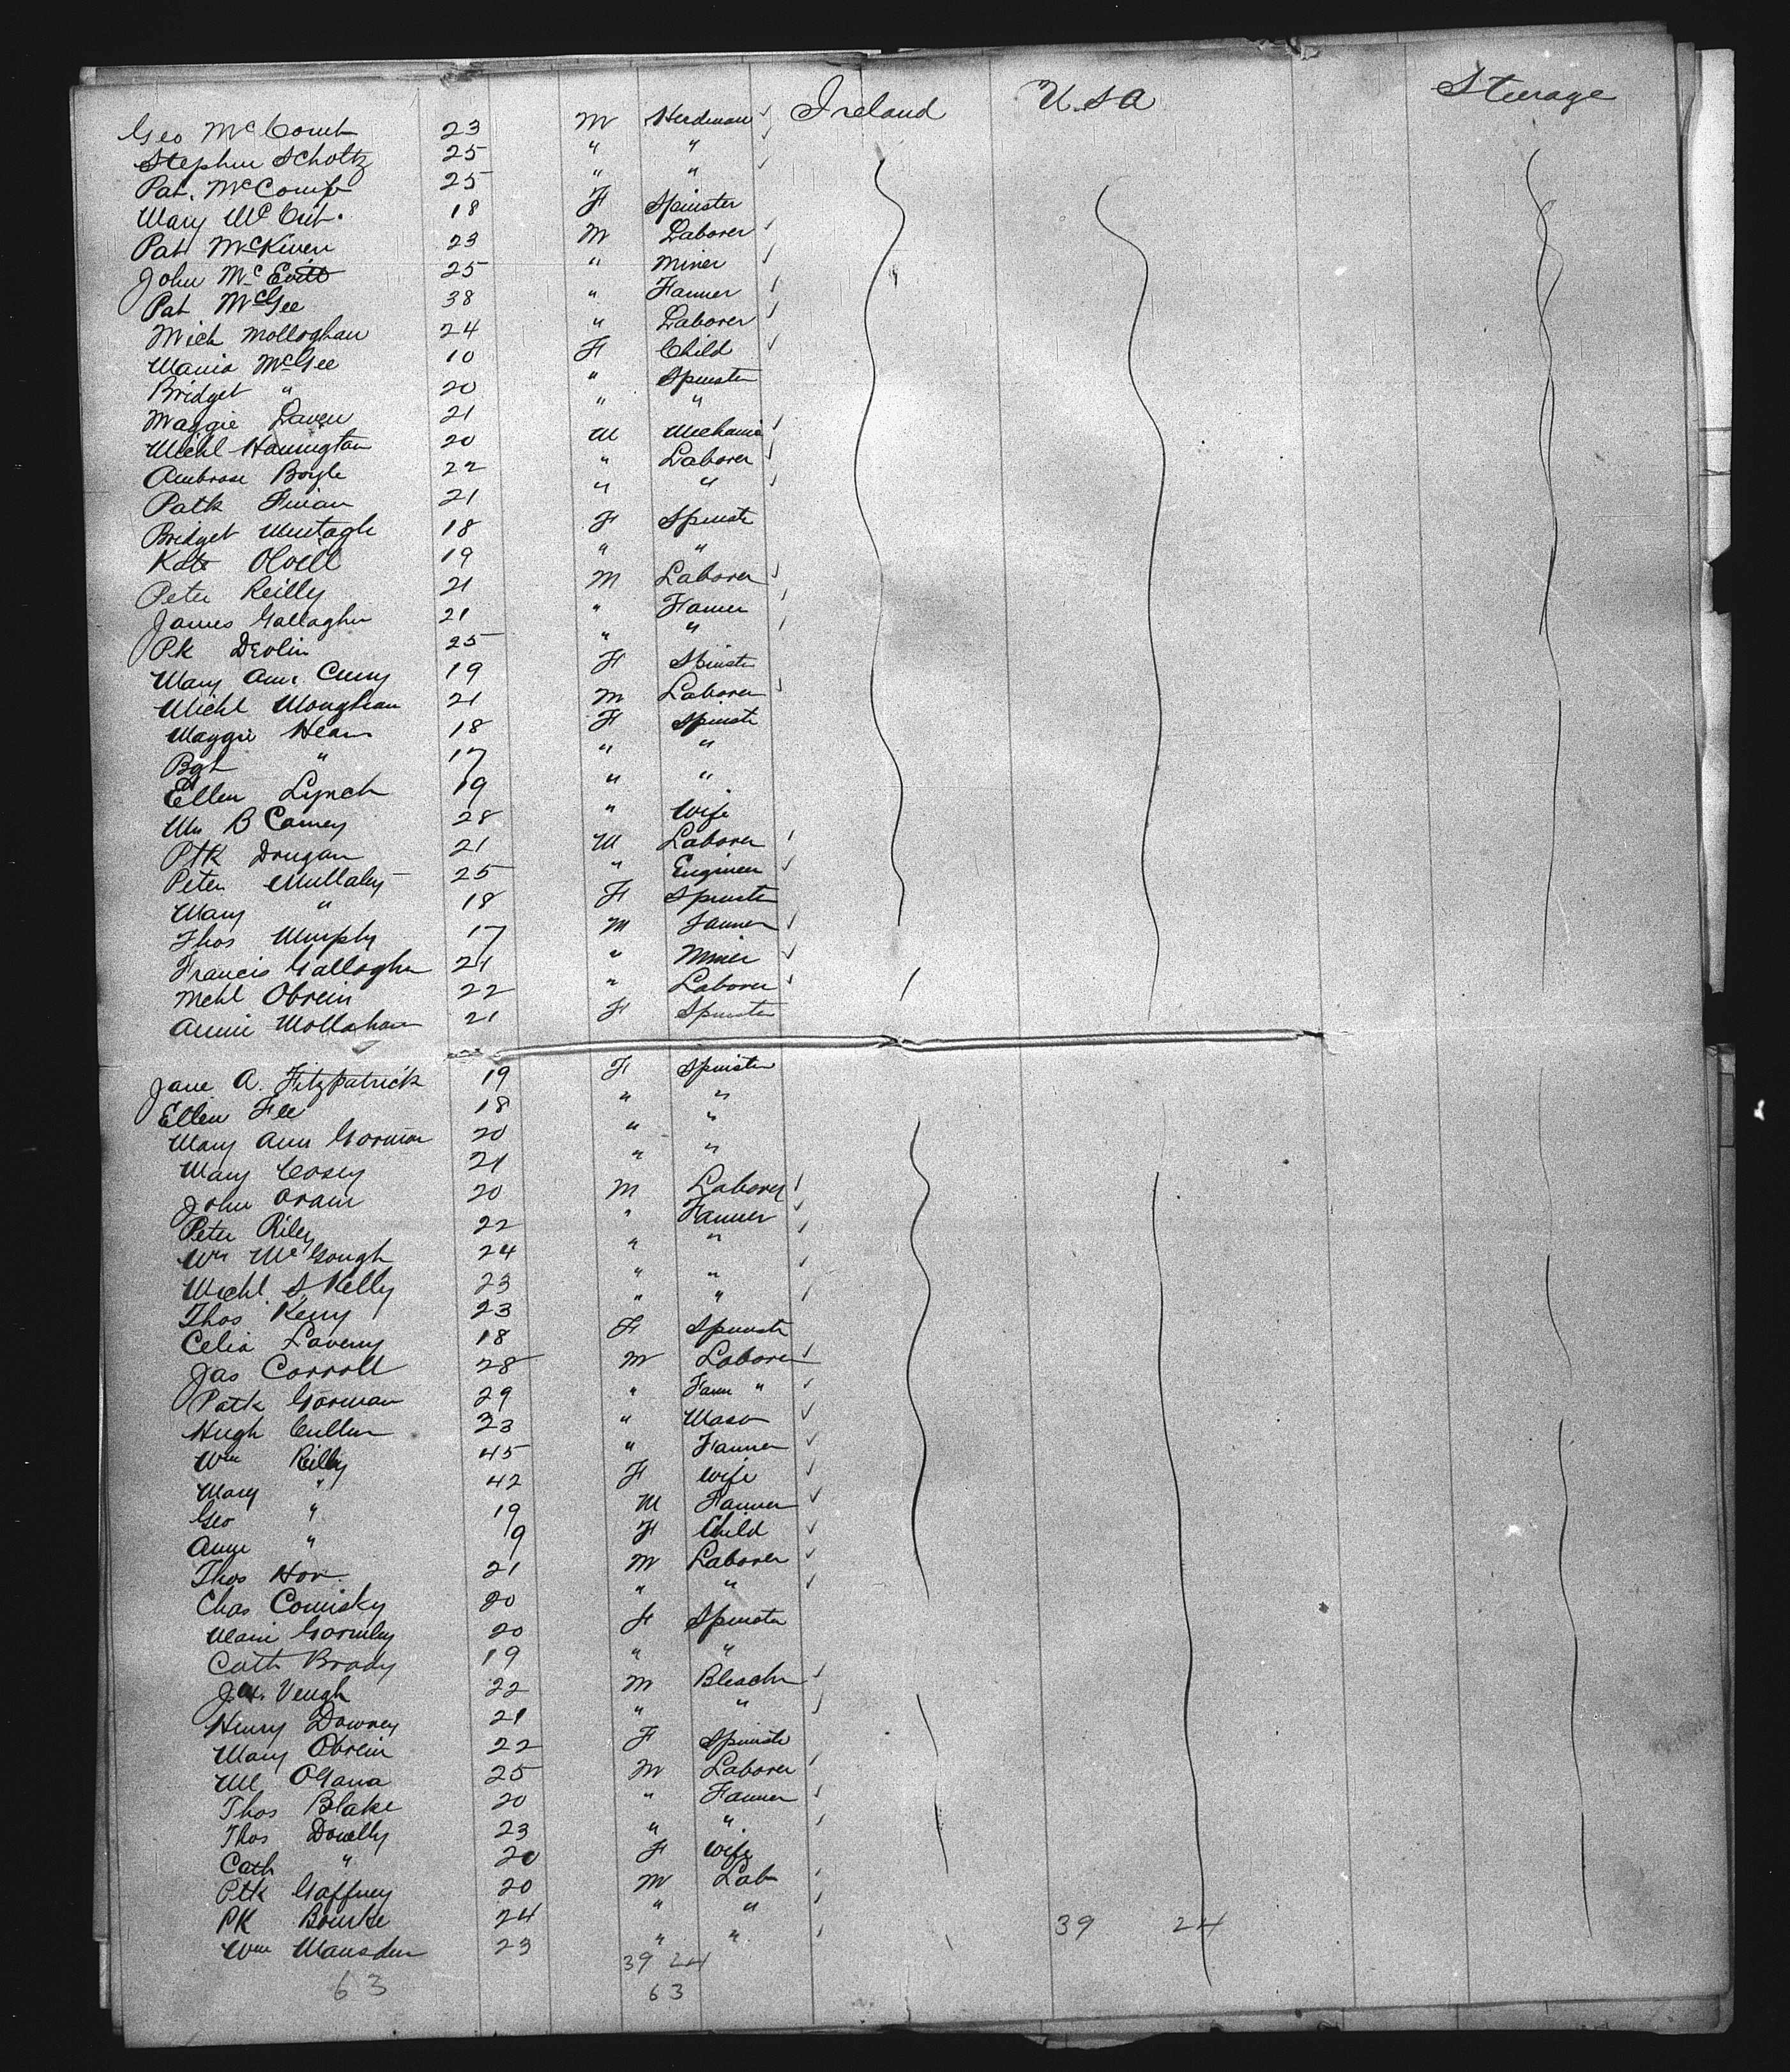 Geo McComb 23 M Herdman Ireland USA Steerage
Stephen Scholtz 25 " "
Pat. McComb 25 " "
Mary Mc 18 F Spinster
Pat McKiven 23 M Laborer
John McEvitt 25 " Miner
Pat McGee 38 " Farmer
Mich Molloghan 24 " Laborer
Maria McGee 10 F Child
Bridget " 20 " Spinster
Maggie 21 " "
Michl Harrington 20 M Mechanic
Ambrose Boyle 22 " Laborer
Patk Finan 21 " "
Bridget Murtagh 18 F Spinst
Kate 19 " "
Peter Reilly 21 M Laborer
James Gallagher 21 " Farmer
Pk Devlin 25 " "
Mary Ann Curry 19 F Spinster
Michl Monghan 21 M Laborer
Maggie 18 F Spinst
Bgt " 17 " "
Ellen Lynch 19 " "
B Carney 28 " Wife
Ptk Drugan 21 M Laborer
Peter Mullaby 25 " Engineer
Mary " 18 F Spinster
Thos Murphy 17 M Farmer
Francis Gallagher 21 " Miner
Mchl Obrein 22 " Laborer
Annie Mollahan 21 F Spinster
Jane A. Fitzpatrick 19 F Spinster
Ellen Fee 18 " "
Mary Ann Gorman 20 " "
Mary Casey 21 " "
John Oram 20 M Laborer
Peter Riley 22 " Farmer
Wm McGough 24 " "
Michl. S. Kelly 23 " "
Thos Kerry 23 " "
Celia Laverny 18 F Spinst
Jas Carroll 28 M Laborer
Patk Gorman 29 " Farm "
Hugh Cullen 23 " Mason
Wm Reilly 45 " Farmer
Mary " 42 F Wife
Geo " 19 M Farmer
Anne " 9 F Child
Thos 21 M Laborer
Chas Comisky 20 " "
Marie Gormley 20 F Spinster
Cath Brady 19 " "
Veugh 22 M Bleacher
Henry Downey 21 " "
Mary Obrein 22 F Spinste
Ml OGara 25 M Laborer
Thos Blake 20 " Farmer
Thos Donelly 23 " "
Cath " 20 F Wife
Ptk Gaffney 20 M Lab
PK Bourke 24 " " 39 24
Wm Mansden 23 " "
39 24
63 63